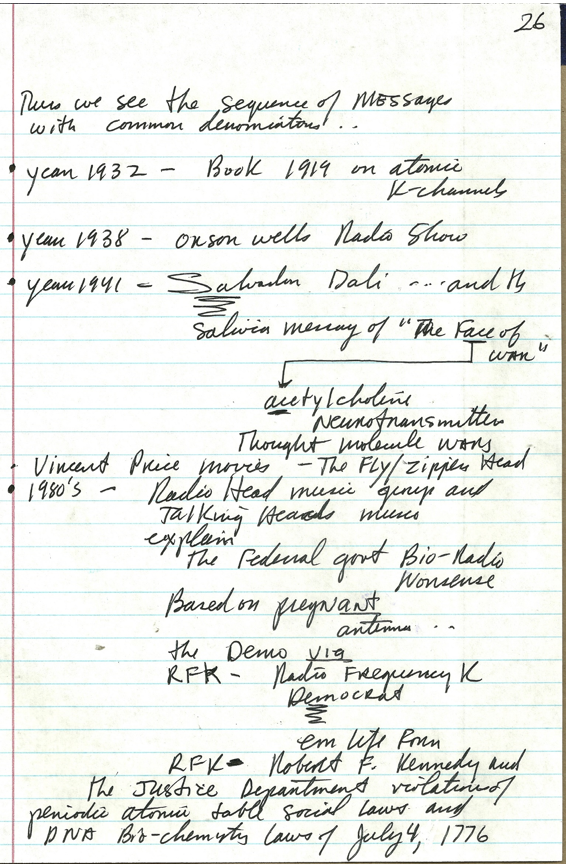 26
Thus we see the sequence of MESSages
with common denominators...
• year 1932 - Book 1919 on atomic
K-channels
• year 1938 - orson wells Radio Show
• year 1941 - Salvador Dali ....and the
Salivia messay of "The Face of
war"
acetylcholine
Neurotransmitter
Thought molecule wars
- Vincent Price movies - The Fly/Zipper Head
• 1980's - Radio Head music group and
Talking Heads music
explain
the Federal govt Bio-Radio
Nonsense
Based on pregnant
antenna ..
the Demo via
RFK - Radio Frequency K
Democrat
em life form
RFK - Robert F. Kennedy and
the Justice Department violation of
periodic atomic table social laws and
DNA Bio-chemistry laws of July 4, 1776